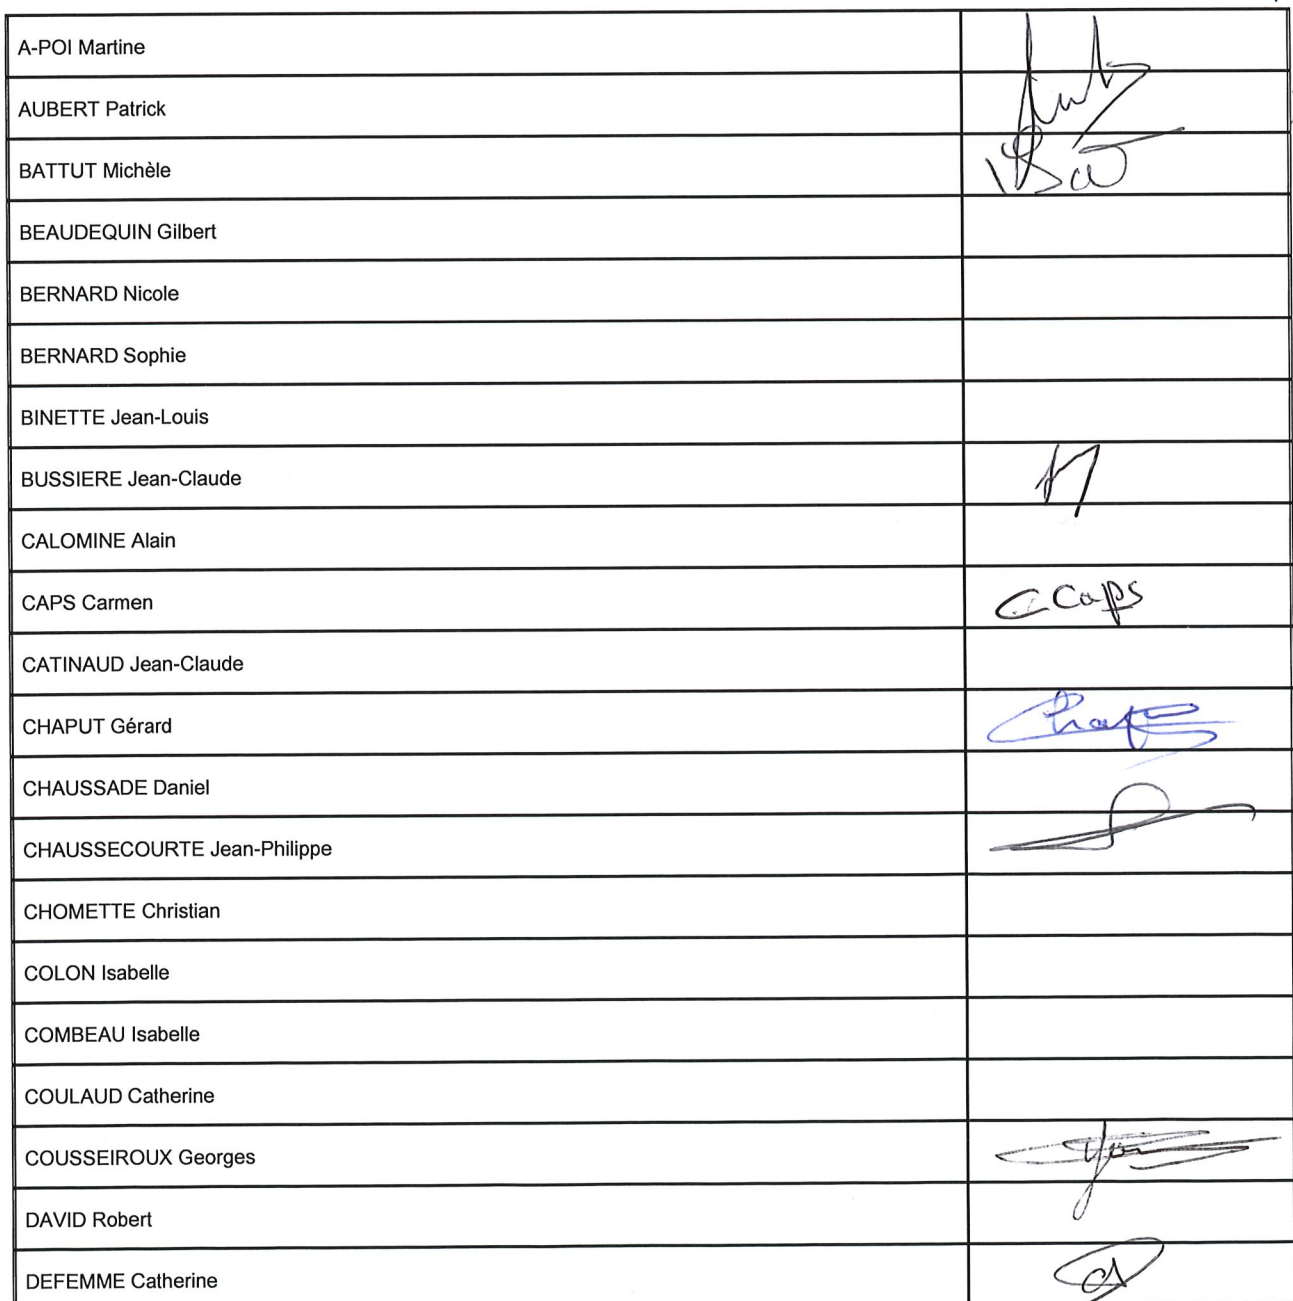 A-POI Martine
AUBERT Patrick
BATTUT Michèle
BEAUDEQUIN Gilbert
BERNARD Nicole
BERNARD Sophie
BINETTE Jean-Louis
BUSSIERE Jean-Claude
CALOMINE Alain
CAPS Carmen C Caps
CATINAUD Jean-Claude
CHAPUT Gérard
CHAUSSADE Daniel
CHAUSSECOURTE Jean-Philippe
CHOMETTE Christian
COLON Isabelle
COMBEAU Isabelle
COULAUD Catherine
COUSSEIROUX Georges
DAVID Robert
DEFEMME Catherine